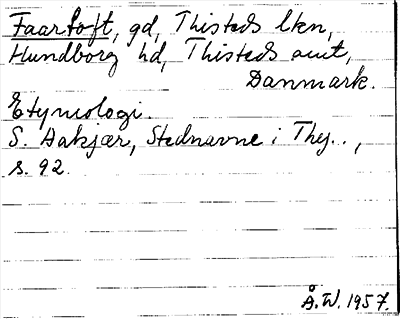 Faartoft, gd, Thisteds lkn,
Hundborg hd, Thisteds amt,
Danmark.
Etymologi.
S. Hakjær, Stednavne i Thy..,
s. 92.
Å.W. 1957.